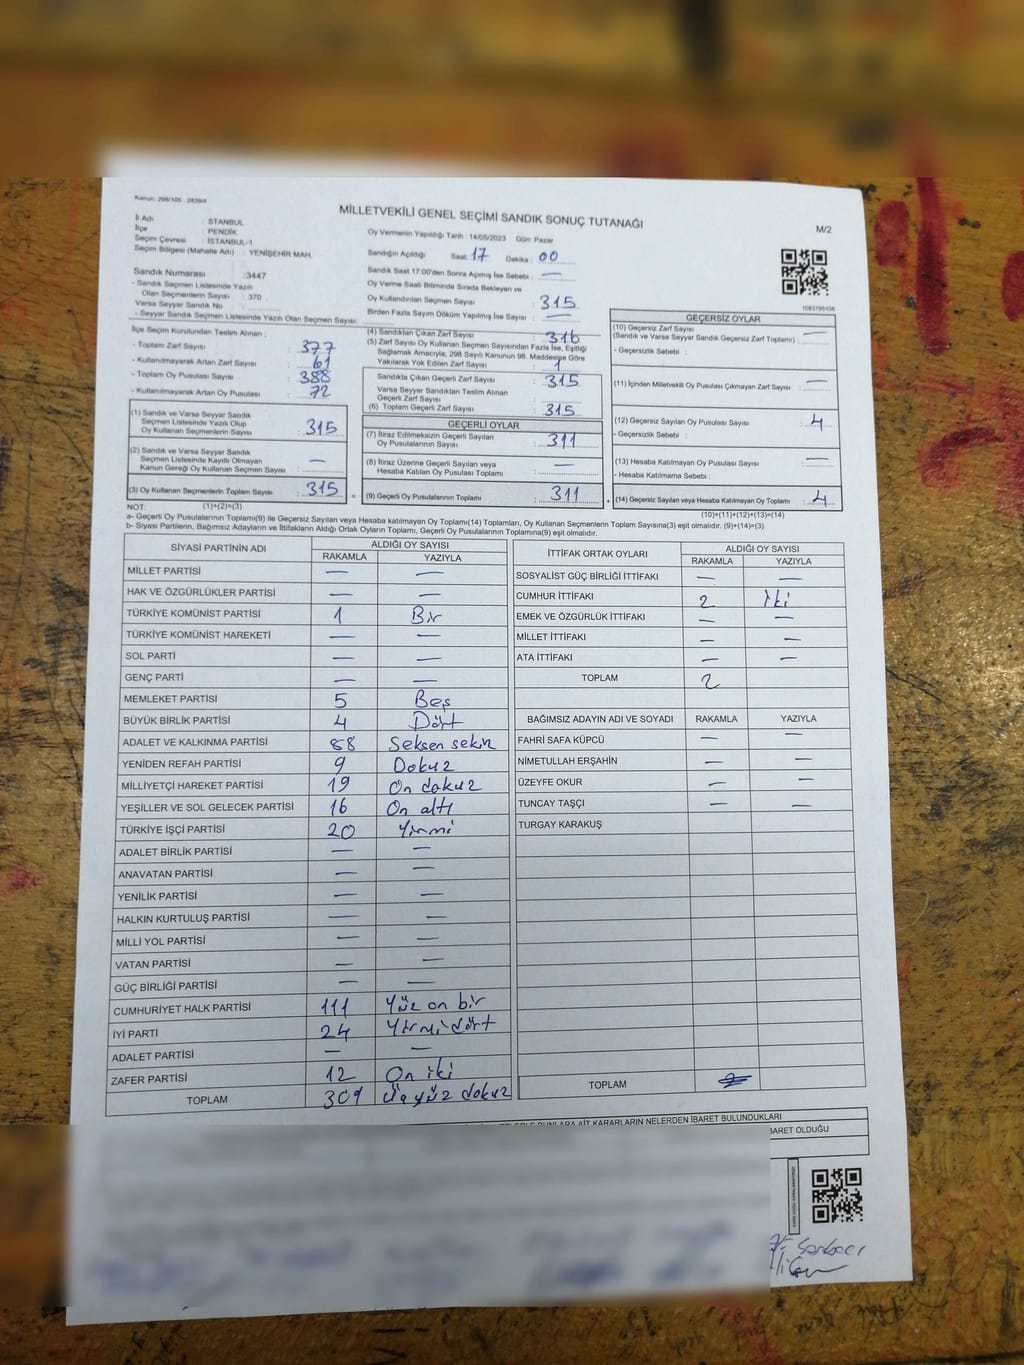 Kanun: 298/105 . 2839/4
MİLLETVEKİLİ GENEL SEÇİMİ SANDIK SONUÇ TUTANAĞI
M/2
İl Adı : İSTANBUL
İlçe : PENDİK
Seçim Çevresi : İSTANBUL-1
Seçim Bölgesi (Mahalle Adı) : YENİŞEHİR MAH.
Oy Vermenin Yapıldığı Tarih : 14/05/2023 Gün: Pazar
Sandığın Açıldığı Saat : 17 Dakika : 00
Sandık Saat 17:00'den Sonra Açılmış İse Sebebi : —
Oy Verme Saati Bitiminde Sırada Bekleyen ve
Oy Kullandırılan Seçmen Sayısı : 315
Birden Fazla Sayım Döküm Yapılmış İse Sayısı : —
1083785108
Sandık Numarası : 3447
- Sandık Seçmen Listesinde Yazılı
Olan Seçmenlerin Sayısı : 370
Varsa Seyyar Sandık No :
- Seyyar Sandık Seçmen Listesinde Yazılı Olan Seçmen Sayısı:
İlçe Seçim Kurulundan Teslim Alınan ;
- Toplam Zarf Sayısı : 377
- Kullanılmayarak Artan Zarf Sayısı : 61
- Toplam Oy Pusulası Sayısı : 388
- Kullanılmayarak Artan Oy Pusulası : 72
(1) Sandık ve Varsa Seyyar Sandık
Seçmen Listesinde Yazılı Olup
Oy Kullanan Seçmenlerin Sayısı : 315
(2) Sandık ve Varsa Seyyar Sandık
Seçmen Listesinde Kayıtlı Olmayan
Kanun Gereği Oy Kullanan Seçmen Sayısı : —
(3) Oy Kullanan Seçmenlerin Toplam Sayısı : 315
(1)+(2)=(3)
(4) Sandıktan Çıkan Zarf Sayısı : 316
(5) Zarf Sayısı Oy Kullanan Seçmen Sayısından Fazla İse, Eşitliği
Sağlamak Amacıyla; 298 Sayılı Kanunun 98. Maddesine Göre
Yakılarak Yok Edilen Zarf Sayısı : 1
Sandıkta Çıkan Geçerli Zarf Sayısı : 315
Varsa Seyyar Sandıktan Teslim Alınan
Geçerli Zarf Sayısı :
(6) Toplam Geçerli Zarf Sayısı : 315
GEÇERLİ OYLAR
(7) İtiraz Edilmeksizin Geçerli Sayılan
Oy Pusulalarının Sayısı : 311
(8) İtiraz Üzerine Geçerli Sayılan veya
Hesaba Katılan Oy Pusulası Toplamı : —
(9) Geçerli Oy Pusulalarının Toplamı : 311
GEÇERSİZ OYLAR
(10) Geçersiz Zarf Sayısı : —
(Sandık ve Varsa Seyyar Sandık Geçersiz Zarf Toplamı)
- Geçersizlik Sebebi :
(11) İçinden Milletvekili Oy Pusulası Çıkmayan Zarf Sayısı : —
(12) Geçersiz Sayılan Oy Pusulası Sayısı : 4
- Geçersizlik Sebebi :
(13) Hesaba Katılmayan Oy Pusulası Sayısı : —
- Hesaba Katılmama Sebebi :
(14) Geçersiz Sayılan veya Hesaba Katılmayan Oy Toplamı : 4
(10)+(11)+(12)+(13)=(14)
NOT:
a- Geçerli Oy Pusulalarının Toplamı(9) ile Geçersiz Sayılan veya Hesaba katılmayan Oy Toplamı(14) Toplamları, Oy Kullanan Seçmenlerin Toplam Sayısına(3) eşit olmalıdır. (9)+(14)=(3)
b- Siyasi Partilerin, Bağımsız Adayların ve İttifakların Aldığı Ortak Oyların Toplamı, Geçerli Oy Pusulalarının Toplamına(9) eşit olmalıdır.
SİYASİ PARTİNİN ADI ALDIĞI OY SAYISI
RAKAMLA YAZIYLA
MİLLET PARTİSİ — —
HAK VE ÖZGÜRLÜKLER PARTİSİ — —
TÜRKİYE KOMÜNİST PARTİSİ 1 Bir
TÜRKİYE KOMÜNİST HAREKETİ — —
SOL PARTİ — —
GENÇ PARTİ — —
MEMLEKET PARTİSİ 5 Beş
BÜYÜK BİRLİK PARTİSİ 4 Dört
ADALET VE KALKINMA PARTİSİ 88 Seksen sekiz
YENİDEN REFAH PARTİSİ 9 Dokuz
MİLLİYETÇİ HAREKET PARTİSİ 19 On dokuz
YEŞİLLER VE SOL GELECEK PARTİSİ 16 On altı
TÜRKİYE İŞÇİ PARTİSİ 20 Yirmi
ADALET BİRLİK PARTİSİ — —
ANAVATAN PARTİSİ — —
YENİLİK PARTİSİ — —
HALKIN KURTULUŞ PARTİSİ — —
MİLLİ YOL PARTİSİ — —
VATAN PARTİSİ — —
GÜÇ BİRLİĞİ PARTİSİ — —
CUMHURİYET HALK PARTİSİ 111 Yüz on bir
İYİ PARTİ 24 Yirmi dört
ADALET PARTİSİ — —
ZAFER PARTİSİ 12 On iki
TOPLAM 309 Üçyüz dokuz
İTTİFAK ORTAK OYLARI ALDIĞI OY SAYISI
RAKAMLA YAZIYLA
SOSYALİST GÜÇ BİRLİĞİ İTTİFAKI — —
CUMHUR İTTİFAKI 2 İki
EMEK VE ÖZGÜRLÜK İTTİFAKI — —
MİLLET İTTİFAKI — —
ATA İTTİFAKI — —
TOPLAM 2
BAĞIMSIZ ADAYIN ADI VE SOYADI RAKAMLA YAZIYLA
FAHRİ SAFA KÜPCÜ — —
NİMETULLAH ERŞAHİN — —
ÜZEYFE OKUR — —
TUNCAY TAŞÇI — —
TURGAY KARAKUŞ
TOPLAM
KARARLARIN NELERDEN İBARET BULUNDUKLARI
BARET OLDUĞU